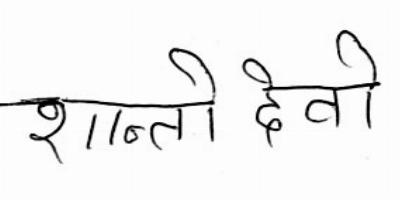 शान्ती देवी